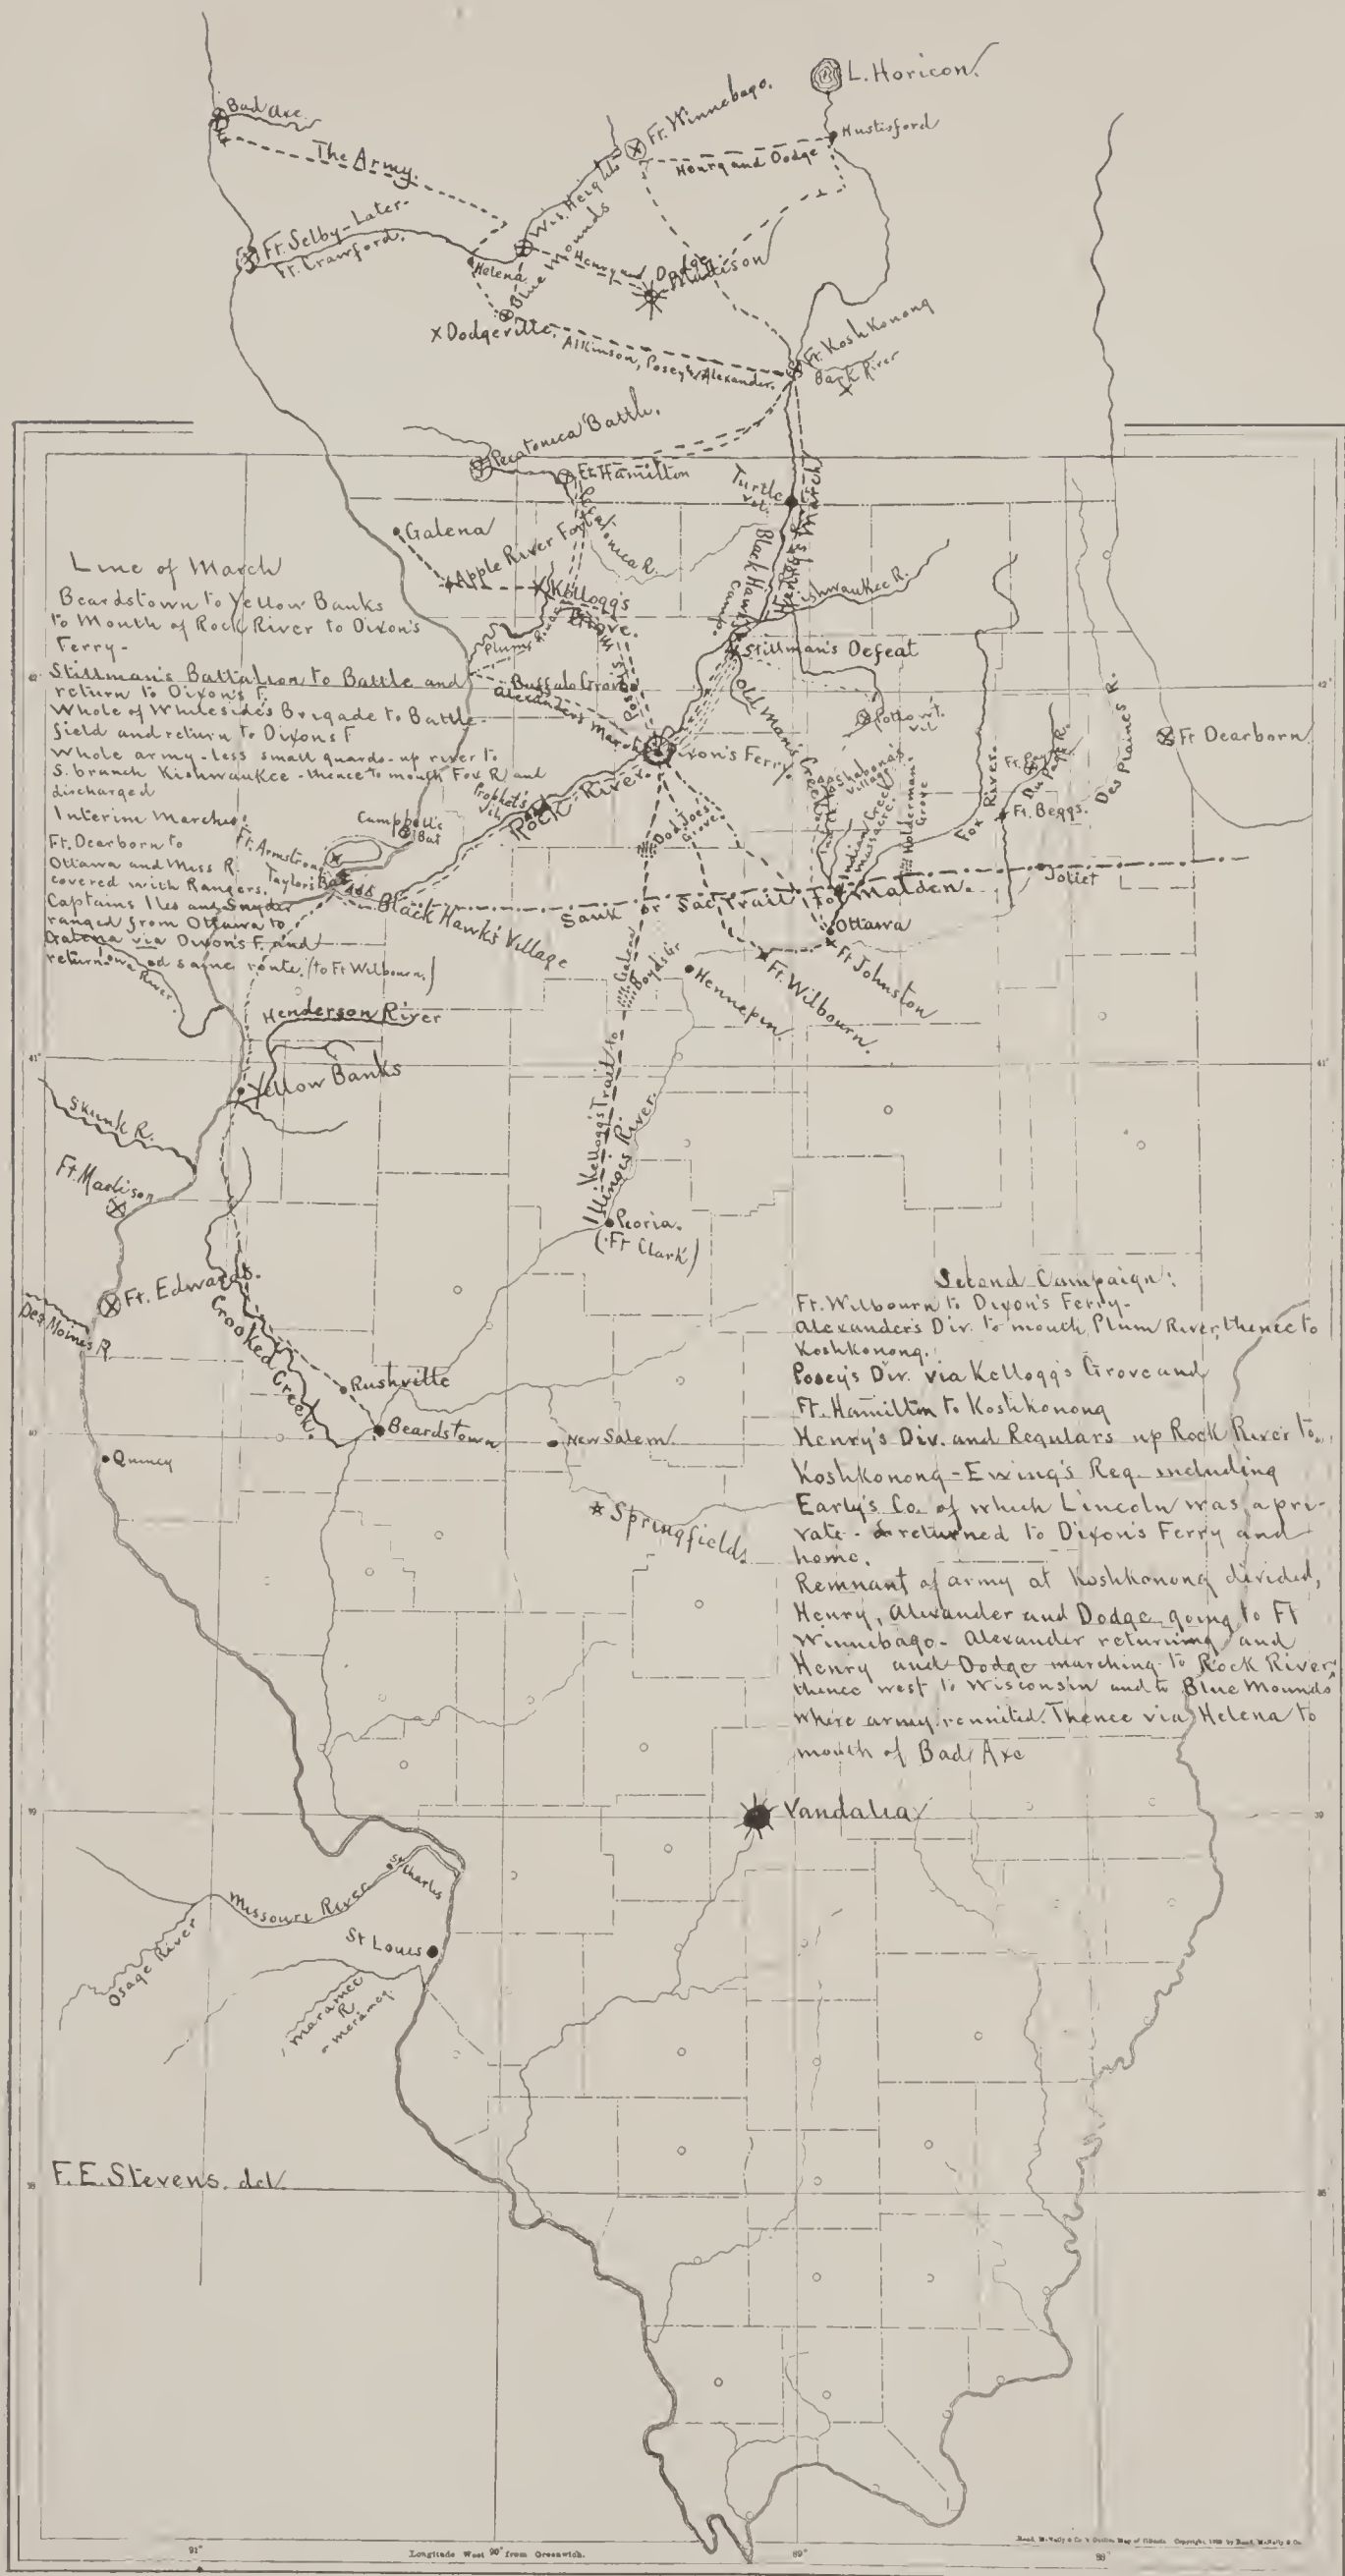 L. Horicon.
Ft. Winnebago.
Hustisford
Bad Axe
The Army.
Henry and Dodge
Wis. Heights
Ft. Selby-Later-
Ft. Crawford.
Helena
Blue Mounds
Henry and Dodge
Madison
x Dodgeville.
Atkinson, Posey & Alexander.
Ft. Koshkonong
Bark River
Pecatonica Battle.
Ft. Hamilton
Turtle
Vil.
Galena
Apple River Fort
Pecatonica R.
Kellogg's
Grove.
Black Hawk's
Camp.
Kishwaukee R.
Plum River
Stillman's Defeat
Buffalo Grove
Alexander's March
Old Man's Creek
Pottowt.
Vil
Dixon's Ferry.
Ft. Dearborn
Des Plaines R.
DuPage R.
Fox River.
Ft. Beggs.
Shabona's
Village
Indian Creek
Massacre.
Holderman's
Grove
Prophet's
Vil.
Rock River.
Campbell's
Bat
Ft. Armstrong
Taylor's Bat
Dad Joe's
Grove
Joliet
Black Hawk's Village
Sauk or Sac Trail to Malden.
Ottawa
Ft Johnston
Ft. Wilbourn.
Hennepin.
Boyd's Gr.
Kellogg's Trail to Galena
Illinois River.
Line of March
Beardstown to Yellow Banks
to Mouth of Rock River to Dixon's
Ferry-
Stillman's Battalion to Battle and
return to Dixon's F.
Whole of Whiteside's Brigade to Battle-
field and return to Dixons F
Whole army-less small guards-up river to
S. branch Kishwaukee-thence to mouth Fox R and
discharged
Interim Marches:
Ft. Dearborn to
Ottawa and Miss R.
covered with Rangers.
Captains Iles and Snyder
ranged from Ottawa to
Galena via Dixon's F. and
return and same route. (to Ft Wilbourn.)
Iowa River.
Henderson River
Yellow Banks
Skunk R.
Ft. Madison
Peoria.
(Ft Clark)
Ft. Edwards.
Des Moines R
Crooked Creek.
Rushville
Beardstown
New Salem.
Quincy
Springfield.
Second Campaign:
Ft. Wilbourn to Dixon's Ferry-
Alexander's Div. to mouth Plum River, thence to
Koshkonong.
Posey's Div. via Kellogg's Grove and
Ft. Hamilton to Koshkonong
Henry's Div. and Regulars up Rock River to
Koshkonong-Ewing's Reg. including
Early's Co. of which Lincoln was a pri-
vate - returned to Dixon's Ferry and
home.
Remnant of army at Koshkonong divided,
Henry, Alexander and Dodge going to Ft
Winnebago- Alexander returning and
Henry and Dodge marching to Rock River,
thence west to Wisconsin and to Blue Mounds
where army reunited. Thence via Helena to
mouth of Bad Axe
Vandalia
St Charles
Missouri River
Osage River
St Louis
Maramec
R
-merameq.
F.E. Stevens. del.
42°
42°
41°
41°
40
39
39
38
38
91°
Longitude West 90° from Greenwich.
89°
88°
Rand, McNally & Co.'s Outline Map of Illinois